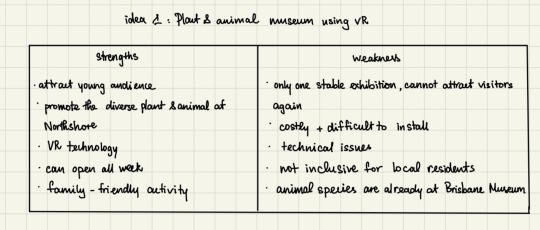 idea 1 : Plant & animal museum using VR
strengths
· attract young audience
· promote the diverse plant & animal at
Northshore
· VR technology
· can open all week
· family - friendly activity
weakness
· only one stable exhibition, cannot attract visitors
again
· costly + difficult to install
· technical issues
· not inclusive for local residents
· animal species are already at Brisbane Museum